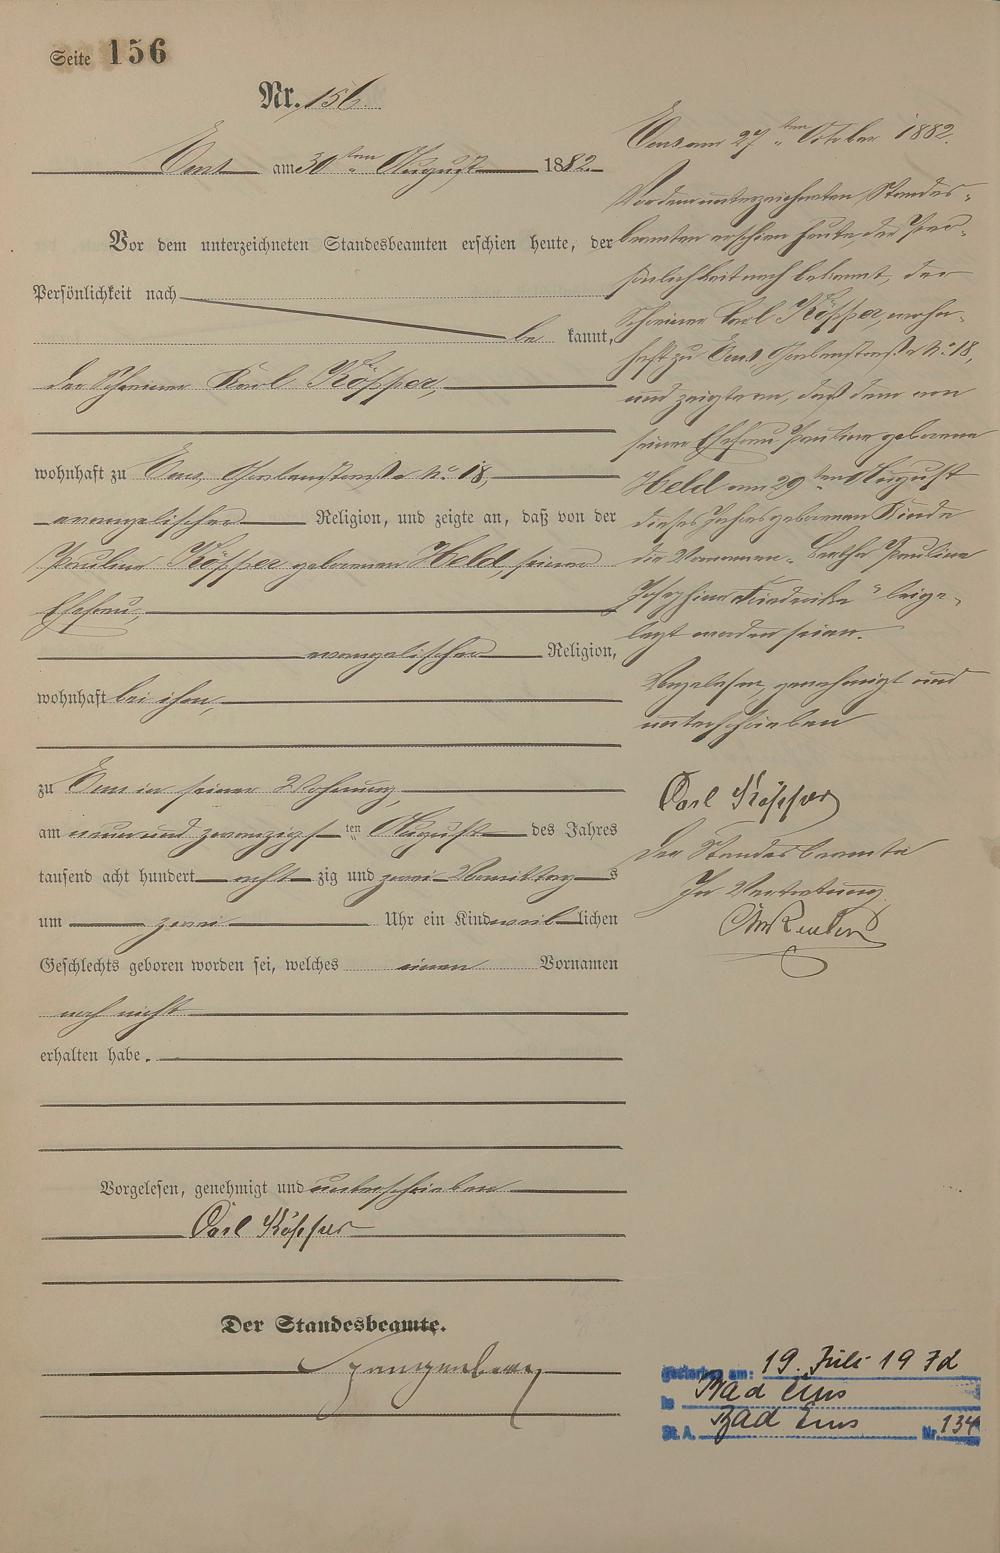 Seite 156
Nr. 156.
Ems am 30ten August 1882.
Vor dem unterzeichneten Standesbeamten erschien heute, der
Persönlichkeit nach
be kannt,
der Schreiner Karl Köpper,
wohnhaft zu Ems, No. 18,
evangelischer Religion, und zeigte an, daß von der
Pauline Köpper geborenen Held, seiner
Ehefrau,
evangelischer Religion,
wohnhaft bei ihm,
zu Ems in seiner Wohnung,
am neun und zwanzigsten August des Jahres
tausend acht hundert acht zig und zwei Vormittags
um zwei Uhr ein Kind weiblichen
Geschlechts geboren worden sei, welches einen Vornamen
noch nicht
erhalten habe.
Vorgelesen, genehmigt und unterschrieben
Carl Köpper
Der Standesbeamte.
Ems am 27ten October 1882.
Vor dem unterzeichneten Standes-
beamten erschien heute, der Per-
sönlichkeit nach bekannt, der
Schreiner Karl Köpper, wohn-
haft zu Ems No. 18,
und zeigte an, daß dem von
seiner Ehefrau Pauline geborene
Held am 29ten August
dieses Jahres geborenen Kinde
die Vornamen "Bertha Pauline
Josephine Friederike" beige-
legt worden seien.
Vorgelesen, genehmigt und
unterschrieben
Carl Köpper
Der Standesbeamte
In Vertretung
gestorben am: 19. Juli 1972
in Bad Ems
St. A. Bad Ems Nr. 134